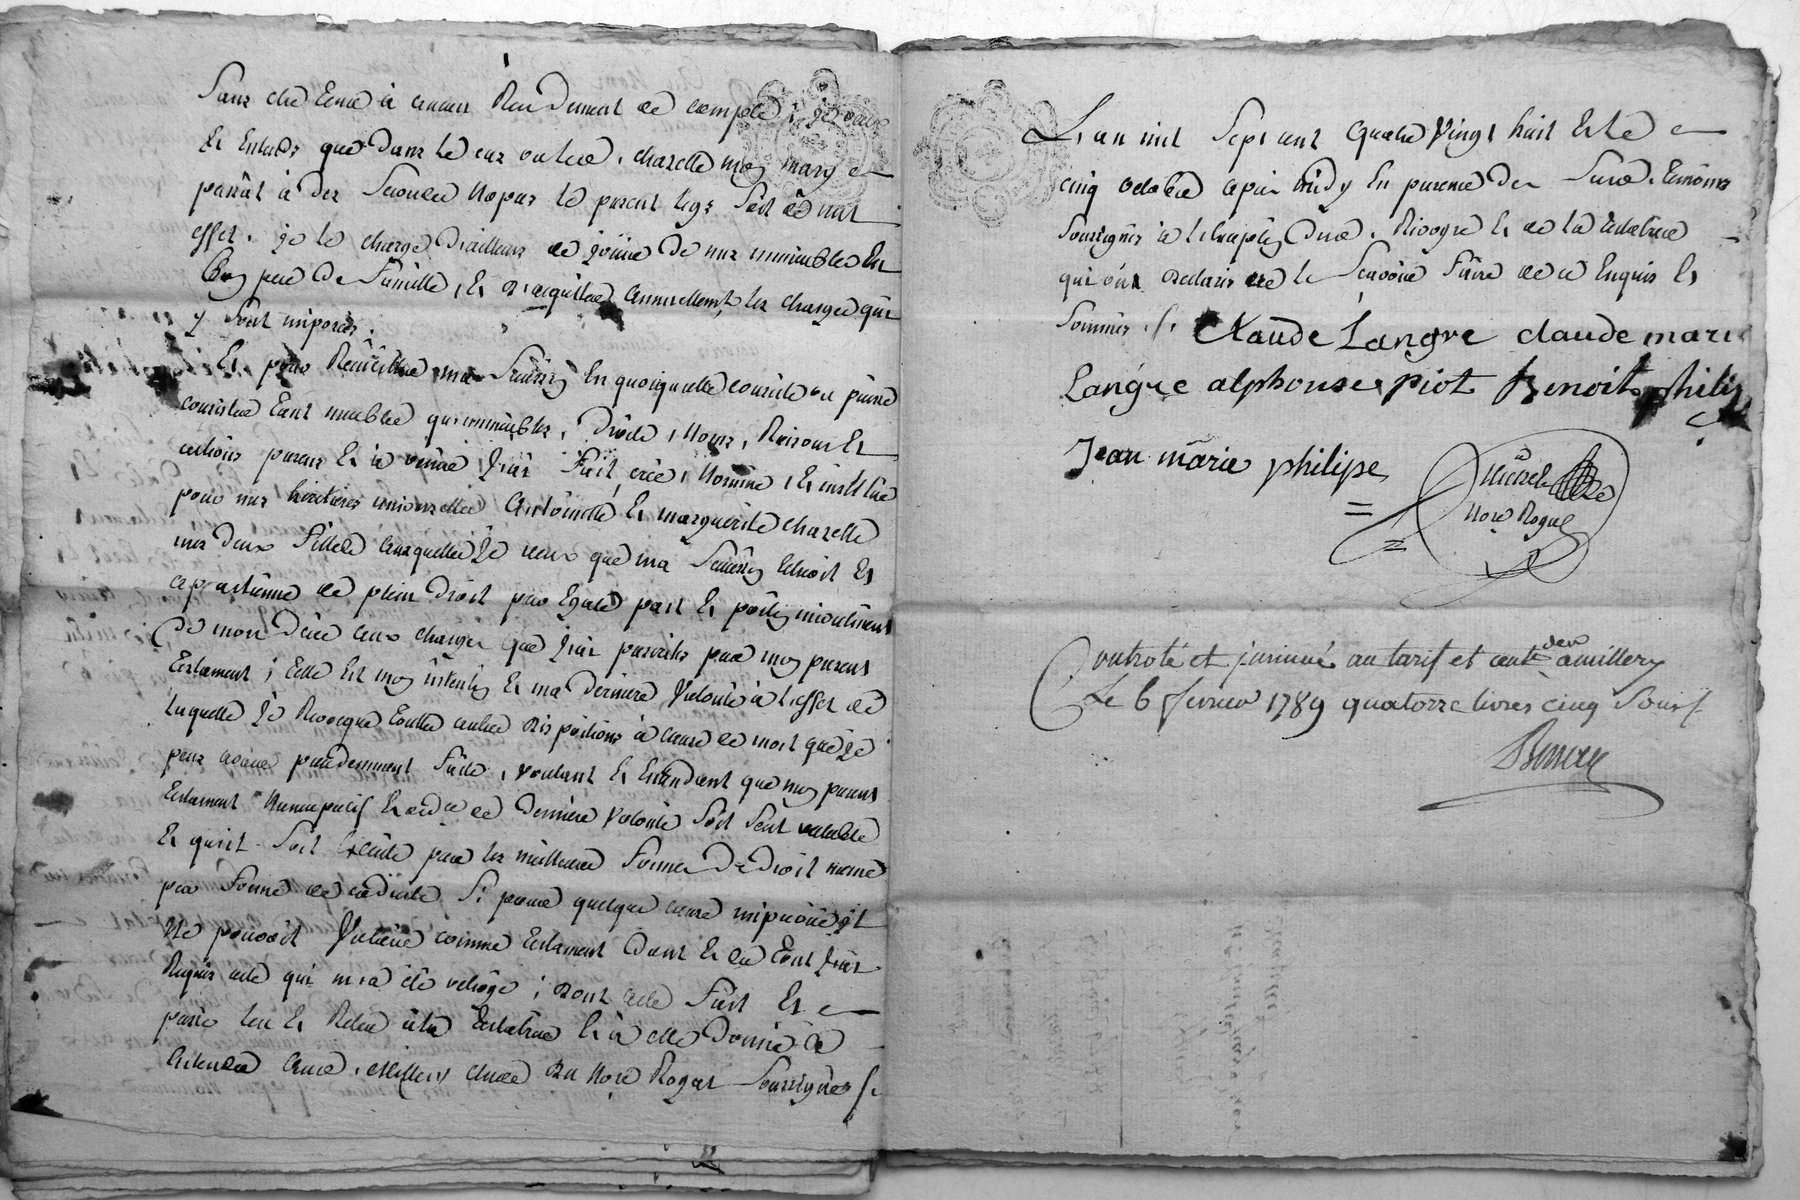 Sans être tenue à aucun Rendement de compte, je veux
Et Entends que dans le cas ou led. chazelle mon mary
passât à des Secondes Nopces le present legs Soit de nul
effet. je le charge d'ailleurs de joüir de mes immeubles En
Bon pere De Famille, Et D'acquitter annuellement les charges qui
y Sont imposés.
Et pour Recüeillir ma Succession En quoiquelle consiste ou puisse
consister tant meubles qu'immeubles, Droits, Noms, Raisons Et
actions presens Et à venir J'ai Fait, créé, Nommé, Et institüé
pour mes heritieres universelles Antoinette Et marguerite chazelle
mes deux Filles auxquelles Je veux que ma Succession Echoit Et
appartienne de plein Droit par Egale part Et portion incontinent
De mon Décé aux charges que J'ai prescrites par mon present
Testament ; telle Est mon intention Et ma derniere Volonté à l'effet de
laquelle Je Revoque toutte autre Dispositions à cause de mort que Je
peux avoir precedemment Faite, voulant Et Entendant que mon present
testament Nuncupatif Et ord.re de Derniere Volonté Soit Seul valable
Et qu'il Soit Executé par les meilleures Formes De Droit meme
par Forme de codicile Si pour quelque cause imprévüe il
Ne pouvoit Valoir comme testament Dont Et du tout J'ai
Requis acte qui m'a été octroyé ; Dont acte Fait Et
passé leu Et Releu à la Testatrice Et à elle Donné à
Entendre aud. Millery Etude Du Nore Royal Soussigné
L'an mil Sept cent Quatre Vingt huit Et le
cinq octobre après midy En presence des Sus d. temoins
Soussignés à l'Exception dud. Rivoyre Et de la testatrice
qui ont Declaré ne le Scavoir Faire de ce Enquis Et
Sommés. Claude Langre claude mari
Langre alphonse piot Benoit philip
Jean marie philipe
Nore Royal
Controlé et insinué au tarif et cent.e den amillery
Le 6 fevrier 1789 quatorze livres cinq Sous